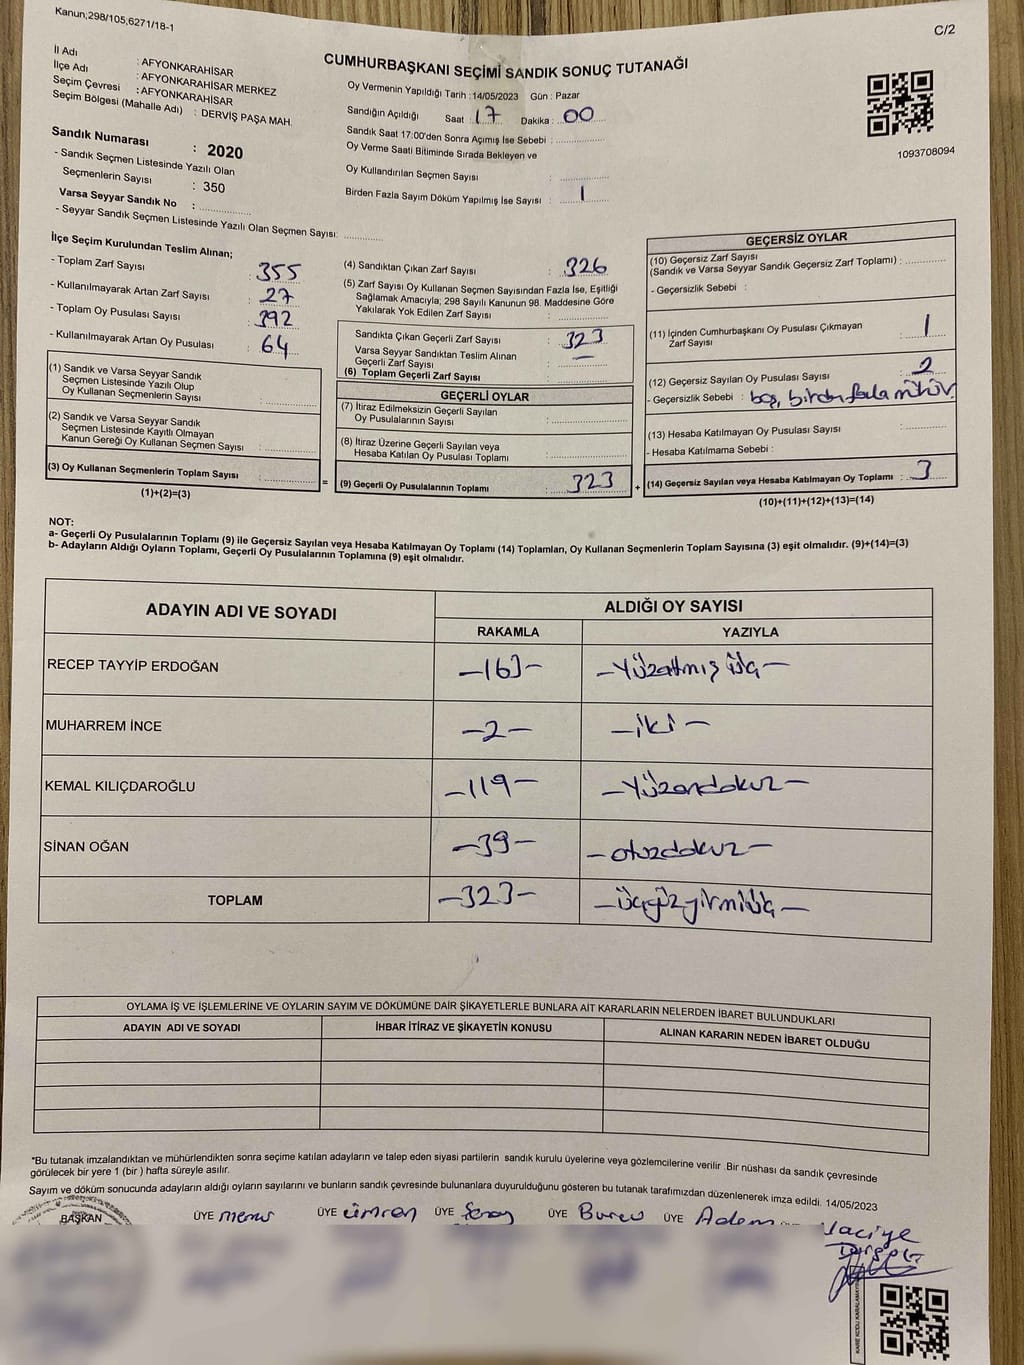 Kanun;298/105,6271/18-1
C/2
CUMHURBAŞKANI SEÇİMİ SANDIK SONUÇ TUTANAĞI
İl Adı : AFYONKARAHİSAR
İlçe Adı : AFYONKARAHİSAR MERKEZ
Seçim Çevresi : AFYONKARAHİSAR
Seçim Bölgesi (Mahalle Adı) : DERVİŞ PAŞA MAH.
Sandık Numarası : 2020
- Sandık Seçmen Listesinde Yazılı Olan
Seçmenlerin Sayısı : 350
Varsa Seyyar Sandık No :
- Seyyar Sandık Seçmen Listesinde Yazılı Olan Seçmen Sayısı:
Oy Vermenin Yapıldığı Tarih :14/05/2023 Gün : Pazar
Sandığın Açıldığı Saat : 17 Dakika : 00
Sandık Saat 17:00'den Sonra Açımış İse Sebebi :
Oy Verme Saati Bitiminde Sırada Bekleyen ve
Oy Kullandırılan Seçmen Sayısı :
Birden Fazla Sayım Döküm Yapılmış İse Sayısı : 1
1093708094
İlçe Seçim Kurulundan Teslim Alınan;
- Toplam Zarf Sayısı : 355
- Kullanılmayarak Artan Zarf Sayısı : 27
- Toplam Oy Pusulası Sayısı : 392
- Kullanılmayarak Artan Oy Pusulası : 64
(1) Sandık ve Varsa Seyyar Sandık
Seçmen Listesinde Yazılı Olup
Oy Kullanan Seçmenlerin Sayısı :
(2) Sandık ve Varsa Seyyar Sandık
Seçmen Listesinde Kayıtlı Olmayan
Kanun Gereği Oy Kullanan Seçmen Sayısı :
(3) Oy Kullanan Seçmenlerin Toplam Sayısı :
(1)+(2)=(3)
(4) Sandıktan Çıkan Zarf Sayısı : 326
(5) Zarf Sayısı Oy Kullanan Seçmen Sayısından Fazla İse, Eşitliği
Sağlamak Amacıyla; 298 Sayılı Kanunun 98. Maddesine Göre
Yakılarak Yok Edilen Zarf Sayısı :
Sandıkta Çıkan Geçerli Zarf Sayısı : 323
Varsa Seyyar Sandıktan Teslim Alınan
Geçerli Zarf Sayısı : —
(6) Toplam Geçerli Zarf Sayısı :
GEÇERLİ OYLAR
(7) İtiraz Edilmeksizin Geçerli Sayılan
Oy Pusulalarının Sayısı :
(8) İtiraz Üzerine Geçerli Sayılan veya
Hesaba Katılan Oy Pusulası Toplamı :
(9) Geçerli Oy Pusulalarının Toplamı : 323
=
+
GEÇERSİZ OYLAR
(10) Geçersiz Zarf Sayısı
(Sandık ve Varsa Seyyar Sandık Geçersiz Zarf Toplamı) :
- Geçersizlik Sebebi :
(11) İçinden Cumhurbaşkanı Oy Pusulası Çıkmayan
Zarf Sayısı : 1
(12) Geçersiz Sayılan Oy Pusulası Sayısı : 2
- Geçersizlik Sebebi : boş, birden fazla mühür.
(13) Hesaba Katılmayan Oy Pusulası Sayısı :
- Hesaba Katılmama Sebebi :
(14) Geçersiz Sayılan veya Hesaba Katılmayan Oy Toplamı : 3
(10)+(11)+(12)+(13)=(14)
NOT:
a- Geçerli Oy Pusulalarının Toplamı (9) ile Geçersiz Sayılan veya Hesaba Katılmayan Oy Toplamı (14) Toplamları, Oy Kullanan Seçmenlerin Toplam Sayısına (3) eşit olmalıdır. (9)+(14)=(3)
b- Adayların Aldığı Oyların Toplamı, Geçerli Oy Pusulalarının Toplamına (9) eşit olmalıdır.
ADAYIN ADI VE SOYADI ALDIĞI OY SAYISI
RAKAMLA YAZIYLA
RECEP TAYYİP ERDOĞAN —163— —Yüzatmış üç—
MUHARREM İNCE —2— —iki—
KEMAL KILIÇDAROĞLU —119— —Yüzondokuz—
SİNAN OĞAN —39— —otuzdokuz—
TOPLAM —323— —üçyüzyirmiüç—
OYLAMA İŞ VE İŞLEMLERİNE VE OYLARIN SAYIM VE DÖKÜMÜNE DAİR ŞİKAYETLERLE BUNLARA AİT KARARLARIN NELERDEN İBARET BULUNDUKLARI
ADAYIN ADI VE SOYADI İHBAR İTİRAZ VE ŞİKAYETİN KONUSU ALINAN KARARIN NEDEN İBARET OLDUĞU
*Bu tutanak imzalandıktan ve mühürlendikten sonra seçime katılan adayların ve talep eden siyasi partilerin sandık kurulu üyelerine veya gözlemcilerine verilir .Bir nüshası da sandık çevresinde
görülecek bir yere 1 (bir ) hafta süreyle asılır.
Sayım ve döküm sonucunda adayların aldığı oyların sayılarını ve bunların sandık çevresinde bulunanlara duyurulduğunu gösteren bu tutanak tarafımızdan düzenlenerek imza edildi. 14/05/2023
BAŞKAN ÜYE ÜYE ümren ÜYE ÜYE Burcu ÜYE Adem Naciye